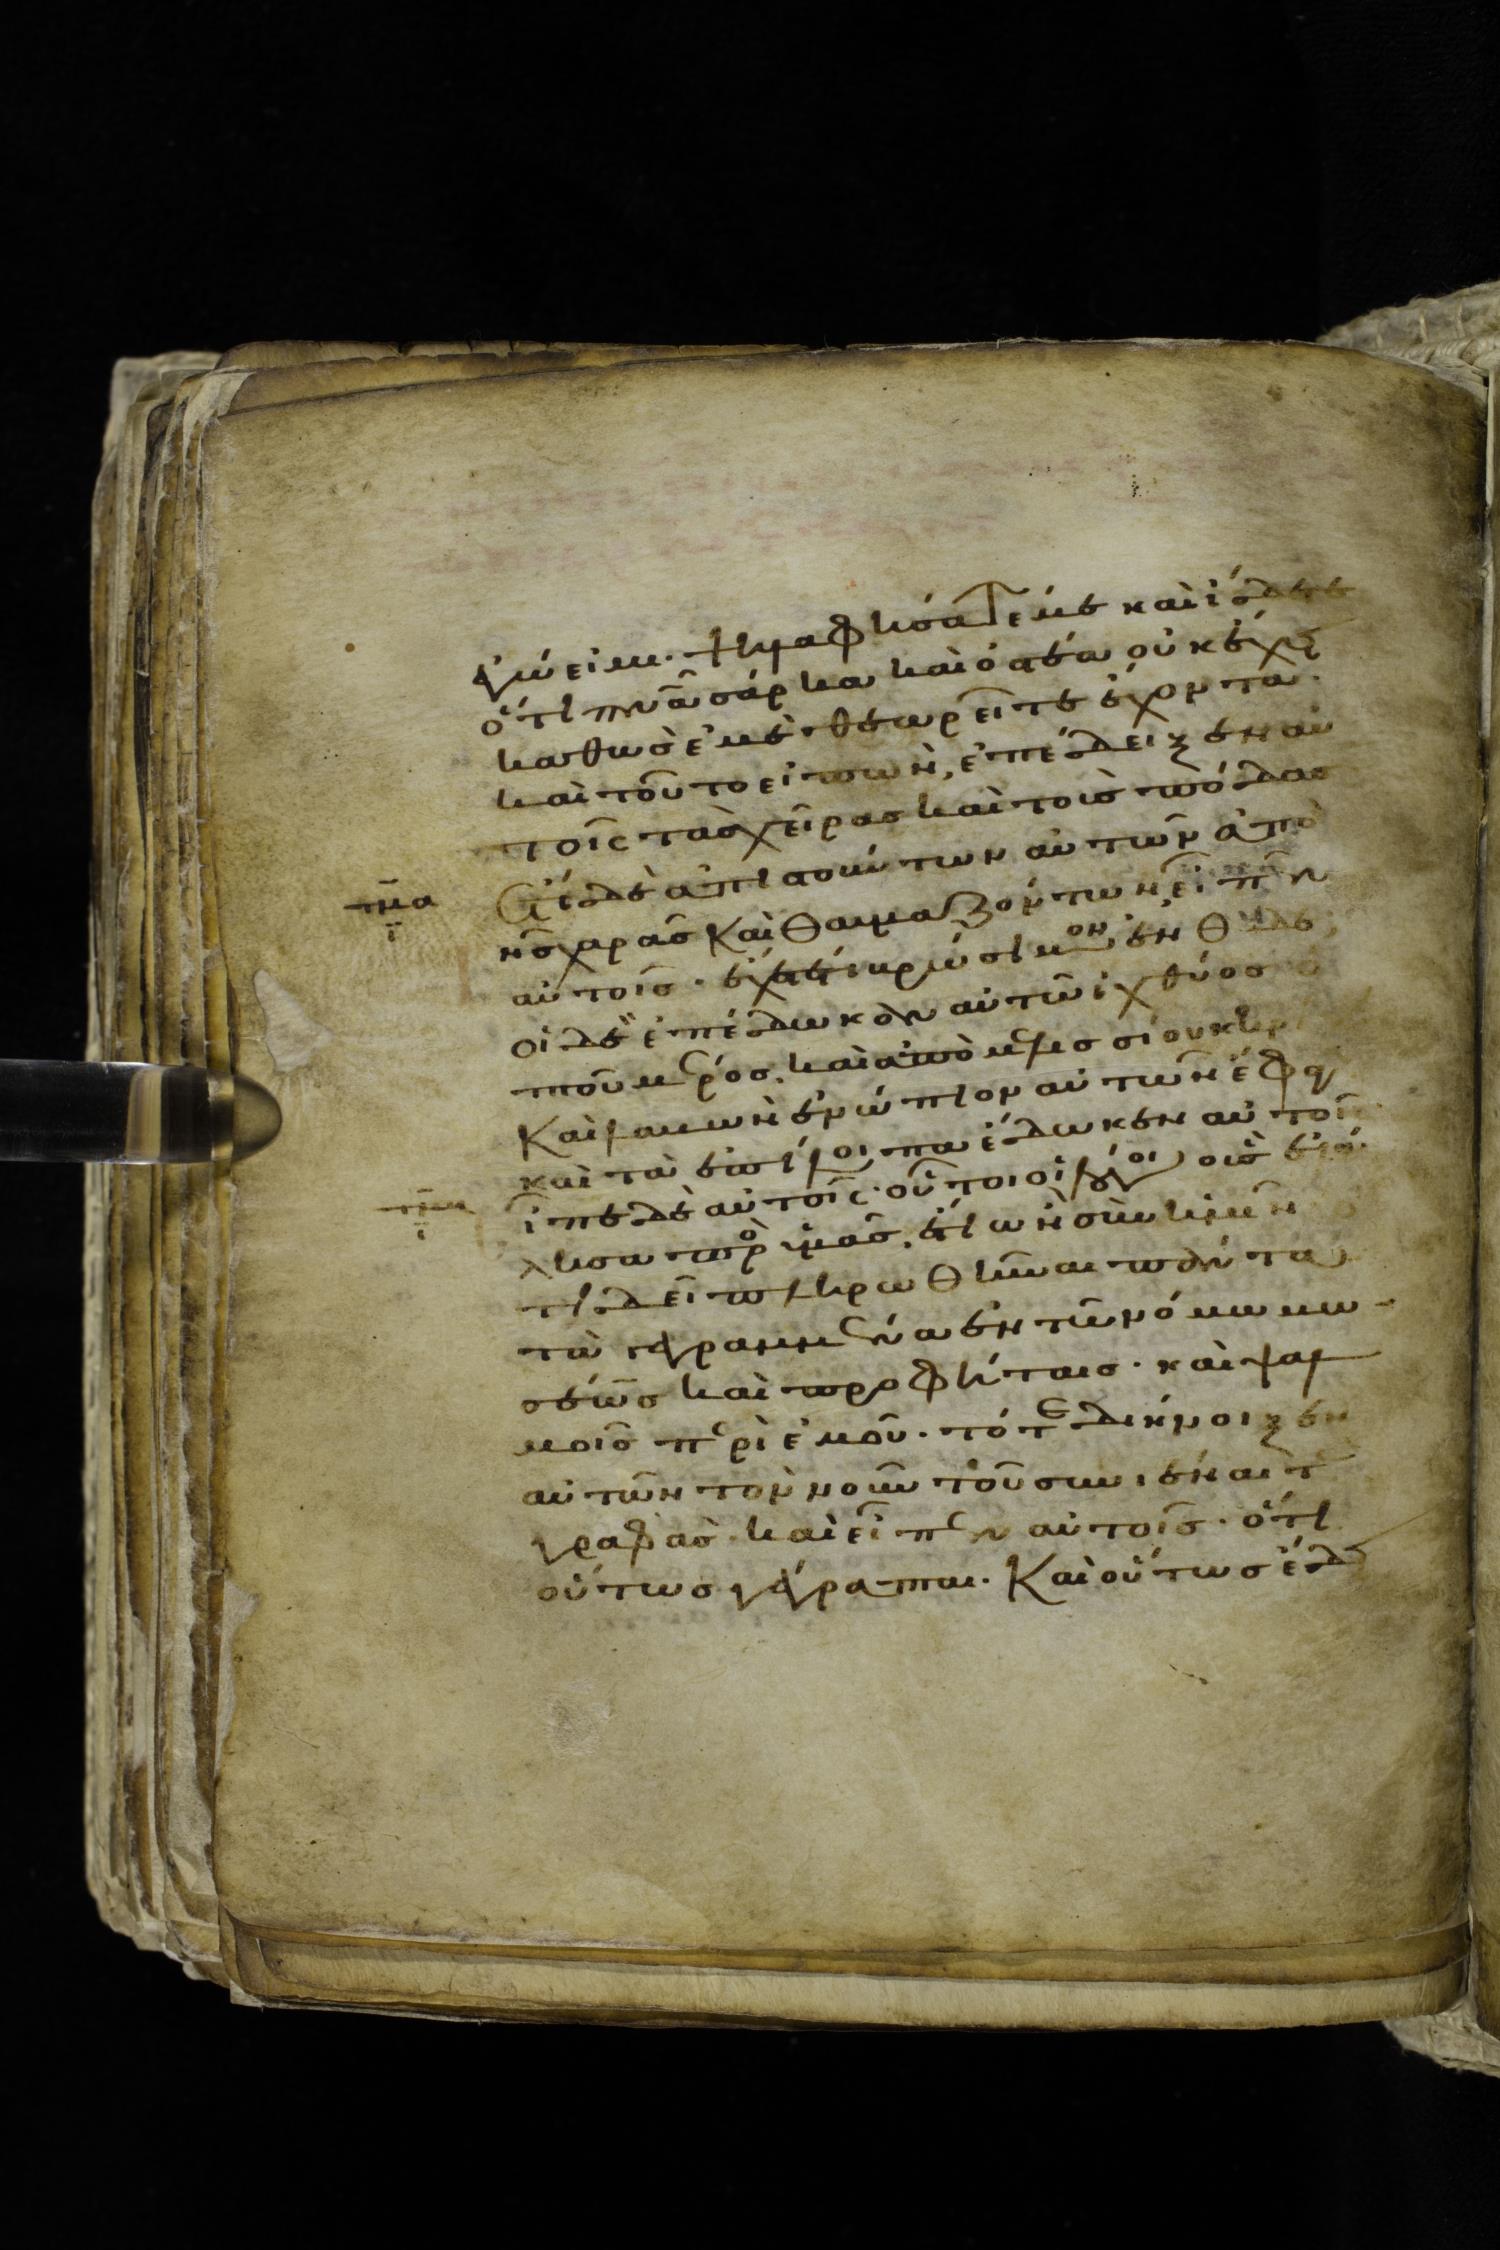 ἐγώ εἰμι. ψηλαφήσατε με καὶ ίδετε
ὅτι πνᾶ σάρκα καὶ ὀστέα οὐκ ἔχει
καθὼς ἐμὲ θεωρεῖτε ἔχοντα.
καὶ τοῦτο εἰπὼν, ἐπέδειξεν αὐ
τοῖς τὰς χεῖρας καὶ τοὺς πόδας
τμα Ἔτι δὲ ἀπιστούντων αὐτῶν ἀπὸ
ι τῆς χαρᾶς καὶ θαυμαζόντων εἶπεν
αὐτοῖς. ἔχετέ τι βρώσιμον ἐνθάδε
οἱ δὲ ἐπέδωκαν αὐτῶ ἰχθύος ὀ
πτοῦ μέρος. καὶ ἀπὸ μελισσίου κηρ
Καὶ λαβὼν ἐνώπιον αὐτῶν ἔφαγ
καὶ τὰ ἐπίλοιπα ἔδωκεν αὐτοῖς
τμβ εἶπε δὲ αὐτοῖς. οὗτοι οἱ λόγοι οὓς ἐλά
ι λησα πρὸ ὑμᾶς. ἔτι ὢν σὺν ὑμῖν ὁ
τι δεῖ πληρωθῆναι πάντα
τὰ γεγραμμένα ἐν τῶ νόμω μω
σέως καὶ προφήταις. καὶ ψαλ
μοῖς περὶ ἐμοῦ. τότε διήνοιξεν
αὐτῶν τὸν νοῦν τοῦ συνιέναι τ
γραφάς. καὶ εἶπεν αὐτοῖς. ὅτι
οὕτως γέγραπται. Καὶ οὕτως ἔδ